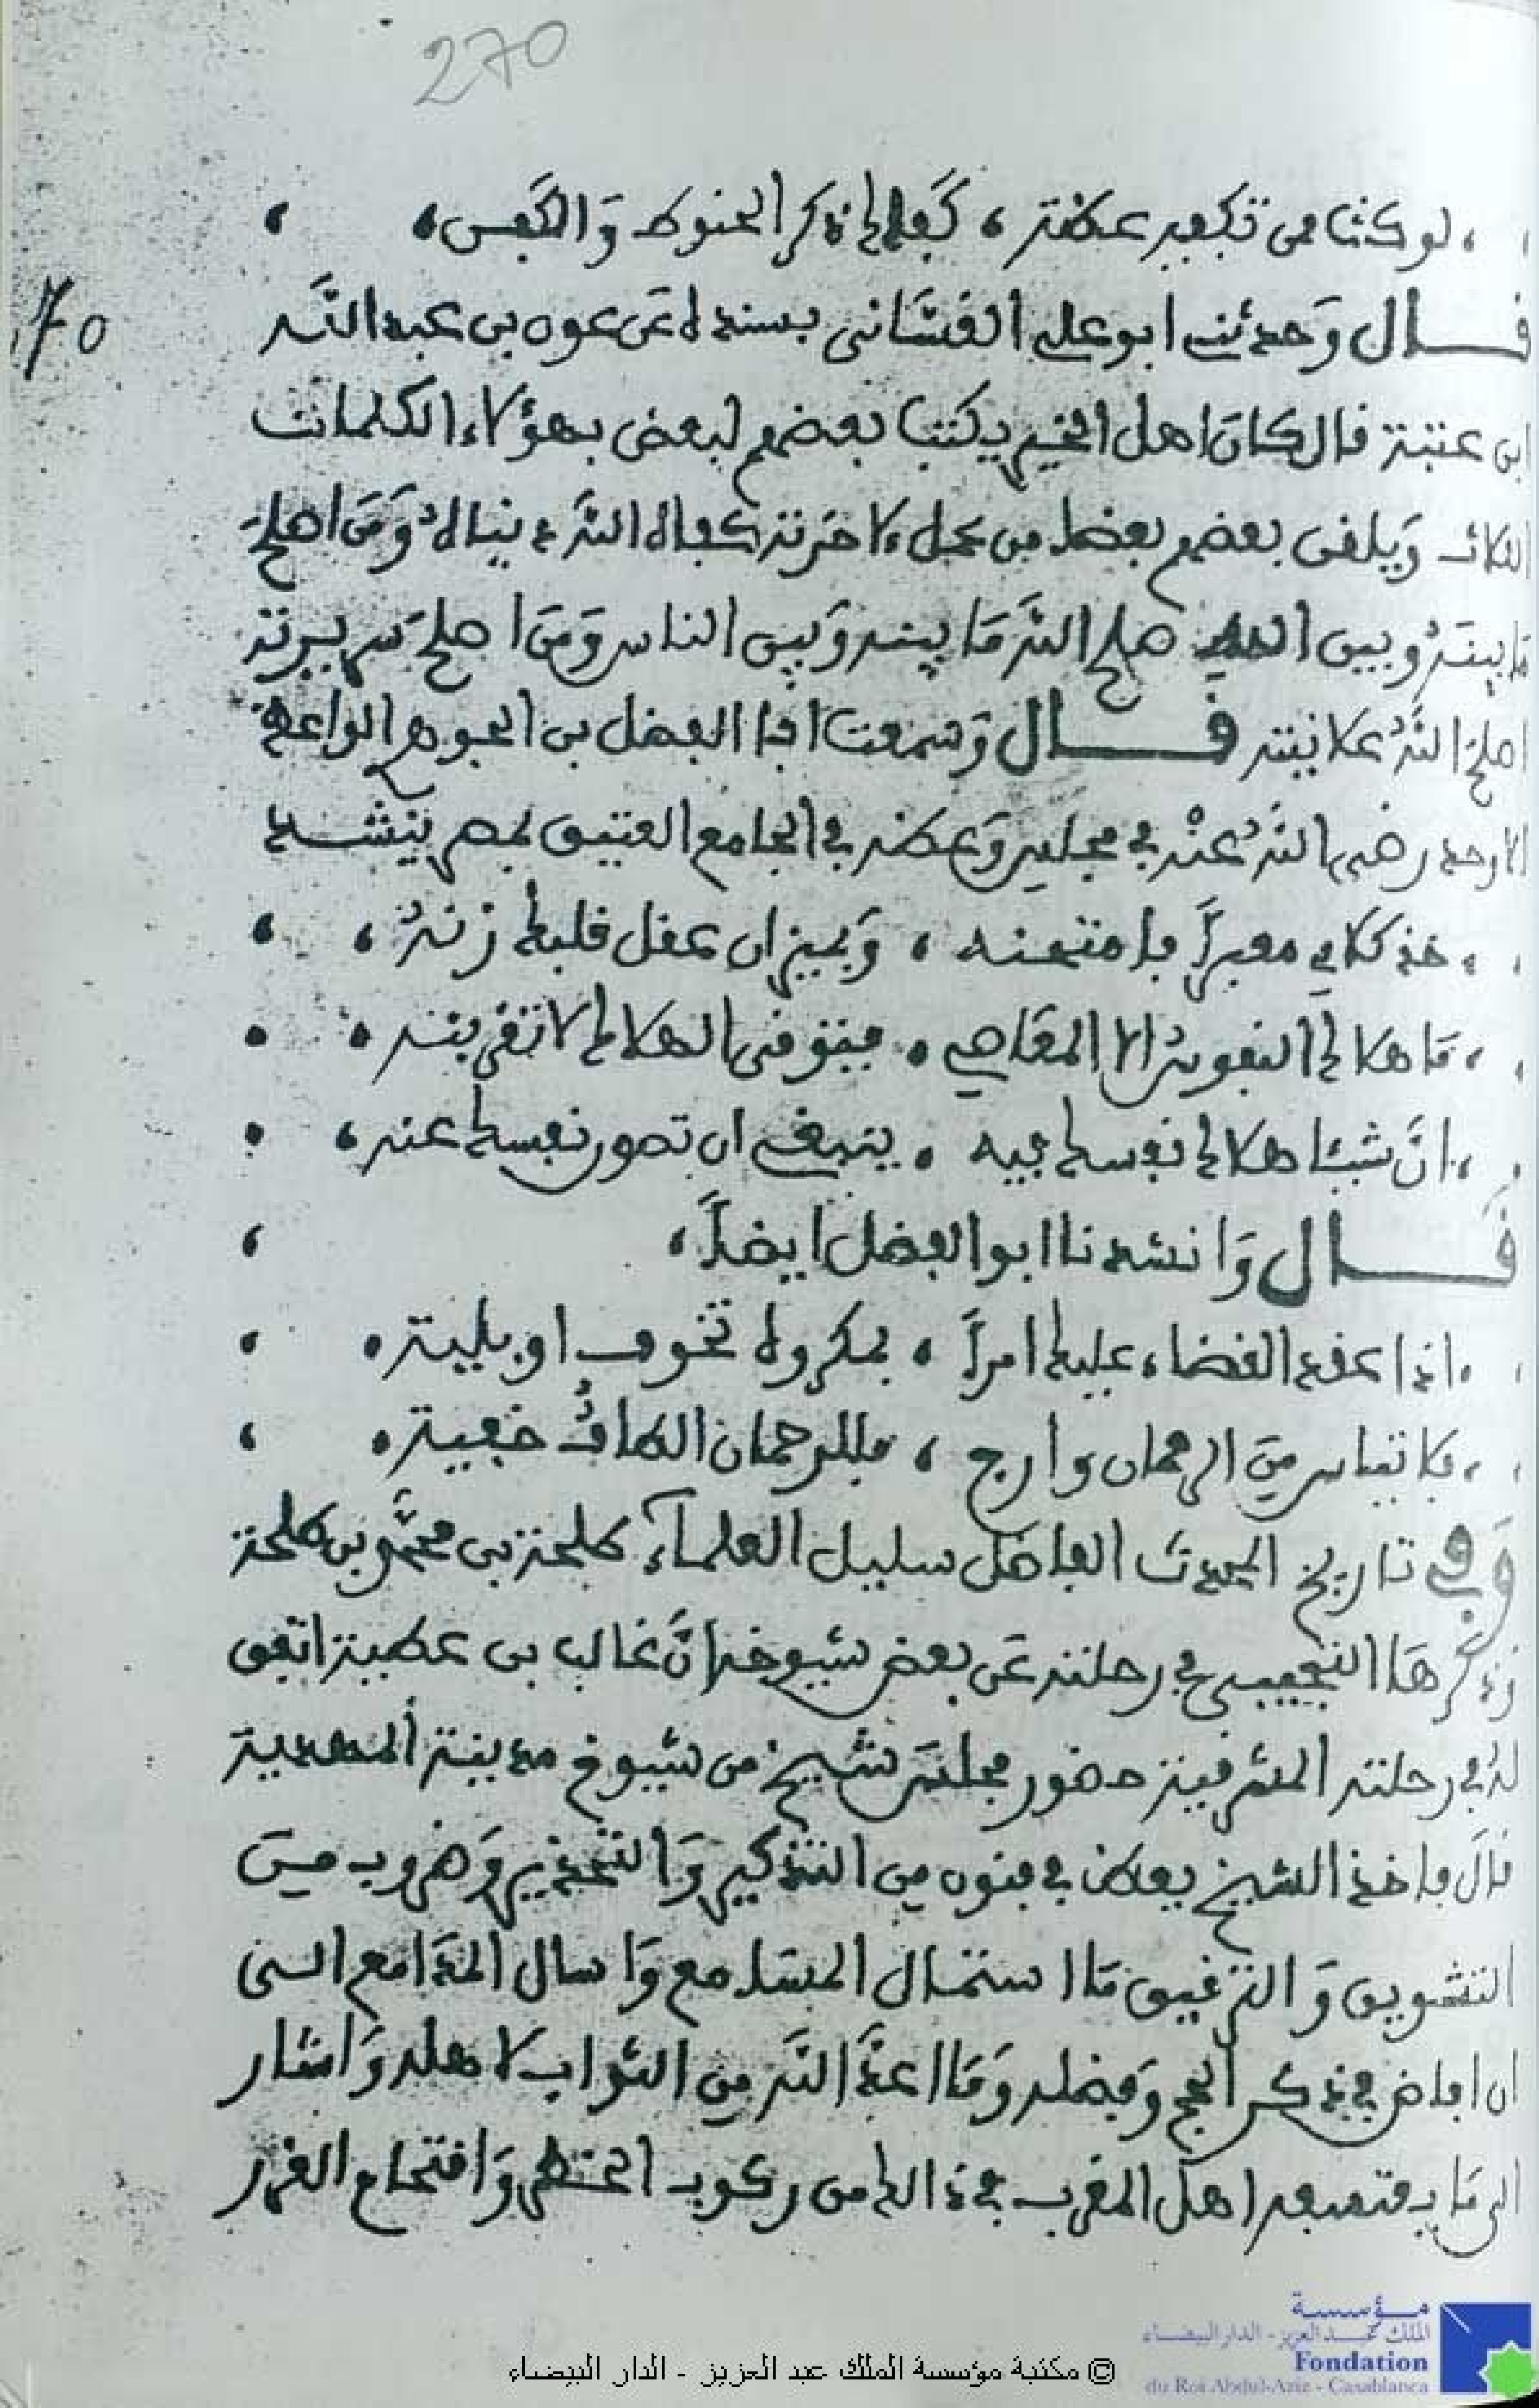 270
لو كنتا من تكبير عظة ، كفاك ذكر الحنوط وَالكفن ،
70
قال وَحدثني ابو علي الغسَّاني بسنده عَن عون بن عبد اللَّه
ابن عتبة قال كان اهل الخير يكتب بعضهم لبعض بهؤلاء الكلمات
الثلاث وَيلقى بعضهم بعضا من عمل لاخرته كفاه اللَّه دنياه وَمَن اصلح
مَا بينهُ وبين اللّه صلح اللَّه مَا بينه وَبين الناس وَمَن اصلح سريرته
اصلح اللَّهُ علانيته قال وَسمعت ابا الفضل بن الجوهري الواعظ
الاوحد رضي اللَّهُ عنْه في مجلس وَعظه في الجامع العتيق بمصر ينشد
خذ كلامي معبراً فامتحنه ، وَبميزان عقل قلبك زنهُ ،
مَا هلاك النفوس الا المعَاصي ، فتوقى الهلاك لا تقربنه ،
انَّ شيئا هلاك نفسك فيه ، ينبغي ان تصون نفسك عنه ،
قَال وَانشدنا ابو الفضل ايضاً ،
اذا عقد القضاء عليك امراً ، بمكروه تخوف او بليته ،
فلا تياس من الرحمان وارج ، فللرحمان الطافٌ خفيته ،
وَفي تاريخ المحدث الفاضل سليل العلماء طلحة بن محمَّد بن طلحة
وَذكرهَا التجيبي في رحلته عَن بعض شيوخه انَّ غالب بن عطية اتفق
لهُ في رحلته المشرقية حضور مجلس شيخ من شيوخ مدينة المهدية
قالَ فاخذ الشيخ يعظ في فنون من التذكير وَالتحذير وَضروب من
التشويق وَالترقيق مَا استمال المسَامع وَاسال المدَامع الى
ان افاض في ذكر الحج وَفضله وَمَا اعدَّ اللَّه من الثواب لاهله وَاشار
الى مَا يقتضيه اهل المغرب في ذالك من ركوب الخطر وَاقتحام الغرر
© مكتبة مؤسسة الملك عبد العزيز - الدار البيضاء
مؤسسة
الملك عبد العزيز - الدار البيضاء
Fondation
du Roi Abdul-Aziz - Casablanca